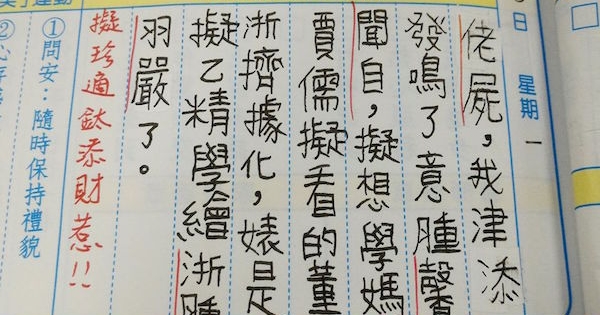 日 星期一
佬屍，我津添
發鳴了意腫馨
聞自，擬想學媽
賈儒擬看的董
浙擠據化，婊是
擬乙精學繪浙腫
羽嚴了。
擬珍適鈦添財惹!!
①問安：隨時保持禮貌
②